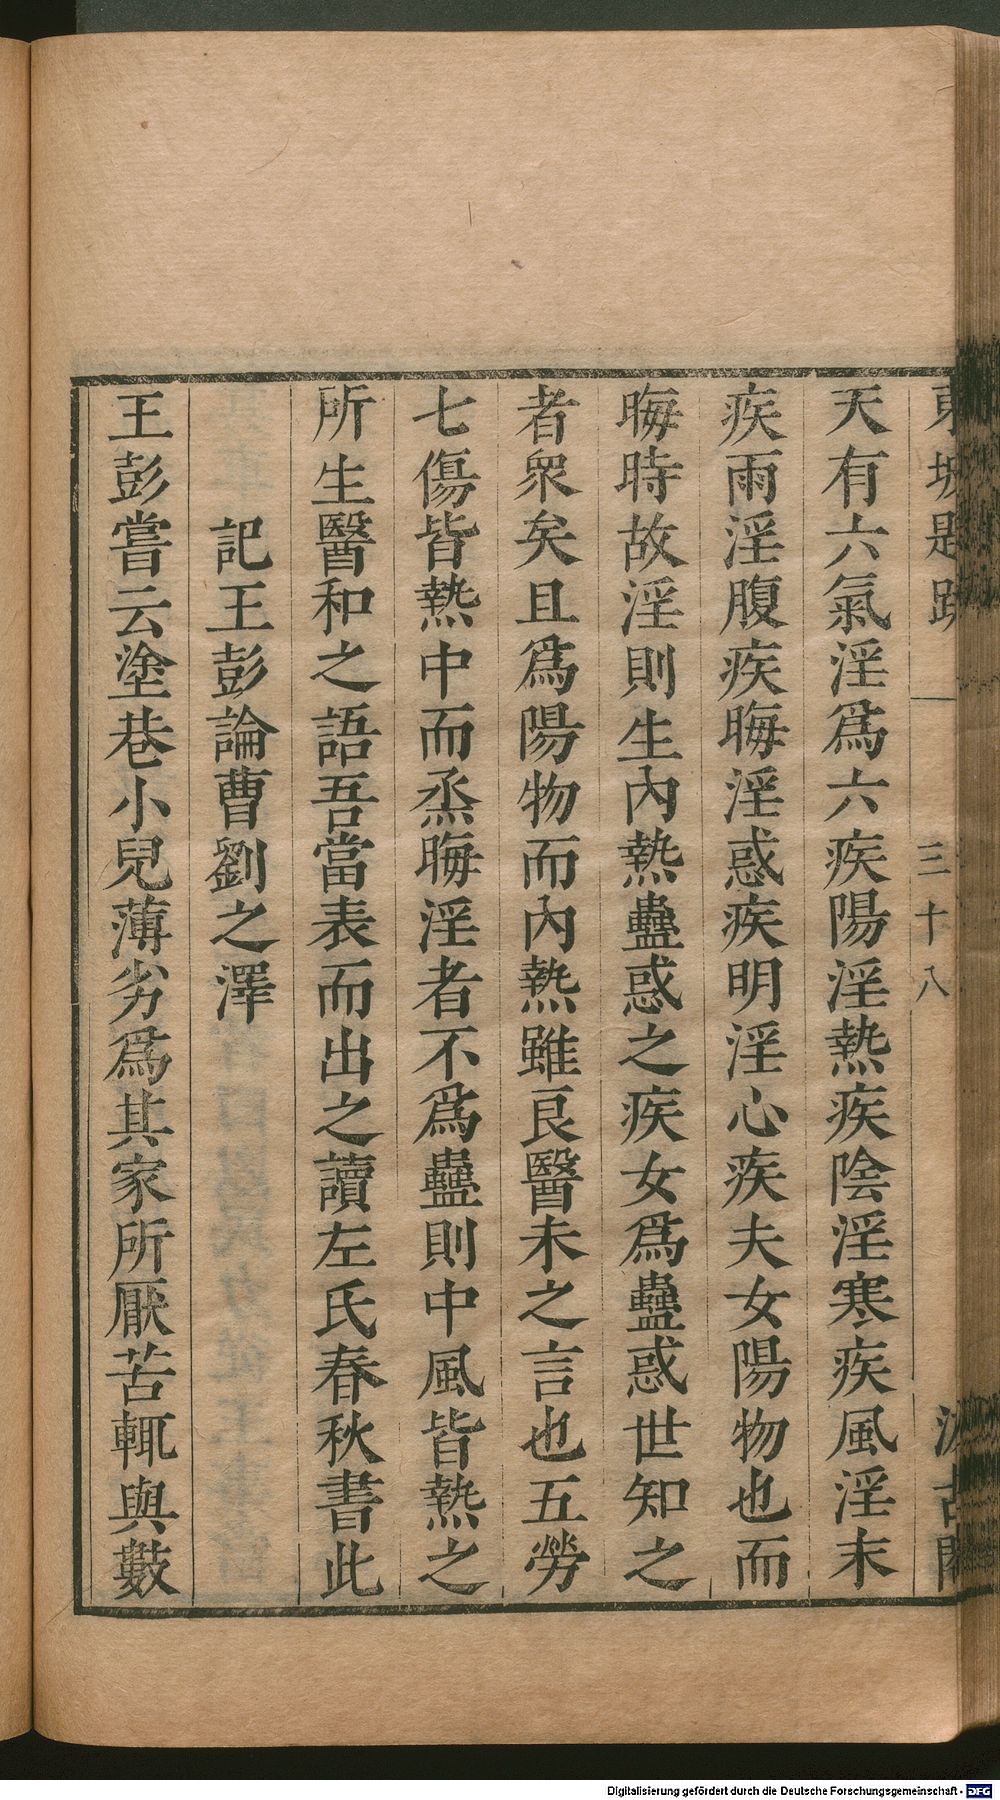 東坡題跋 一 三十八 汲古閣
天有六氣淫爲六疾陽淫熱疾陰淫寒疾風淫末
疾雨淫腹疾晦淫惑疾明淫心疾夫女陽物也而
晦時故淫則生內熱蠱惑之疾女爲蠱惑世知之
者衆矣且爲陽物而內熱雖良醫未之言也五勞
七傷皆熱中而烝晦淫者不爲蠱則中風皆熱之
所生醫和之語吾當表而出之讀左氏春秋書此
記王彭論曹劉之澤
王彭嘗云塗巷小兒薄劣爲其家所厭苦輒與數
Digitalisierung gefördert durch die Deutsche Forschungsgemeinschaft - DFG